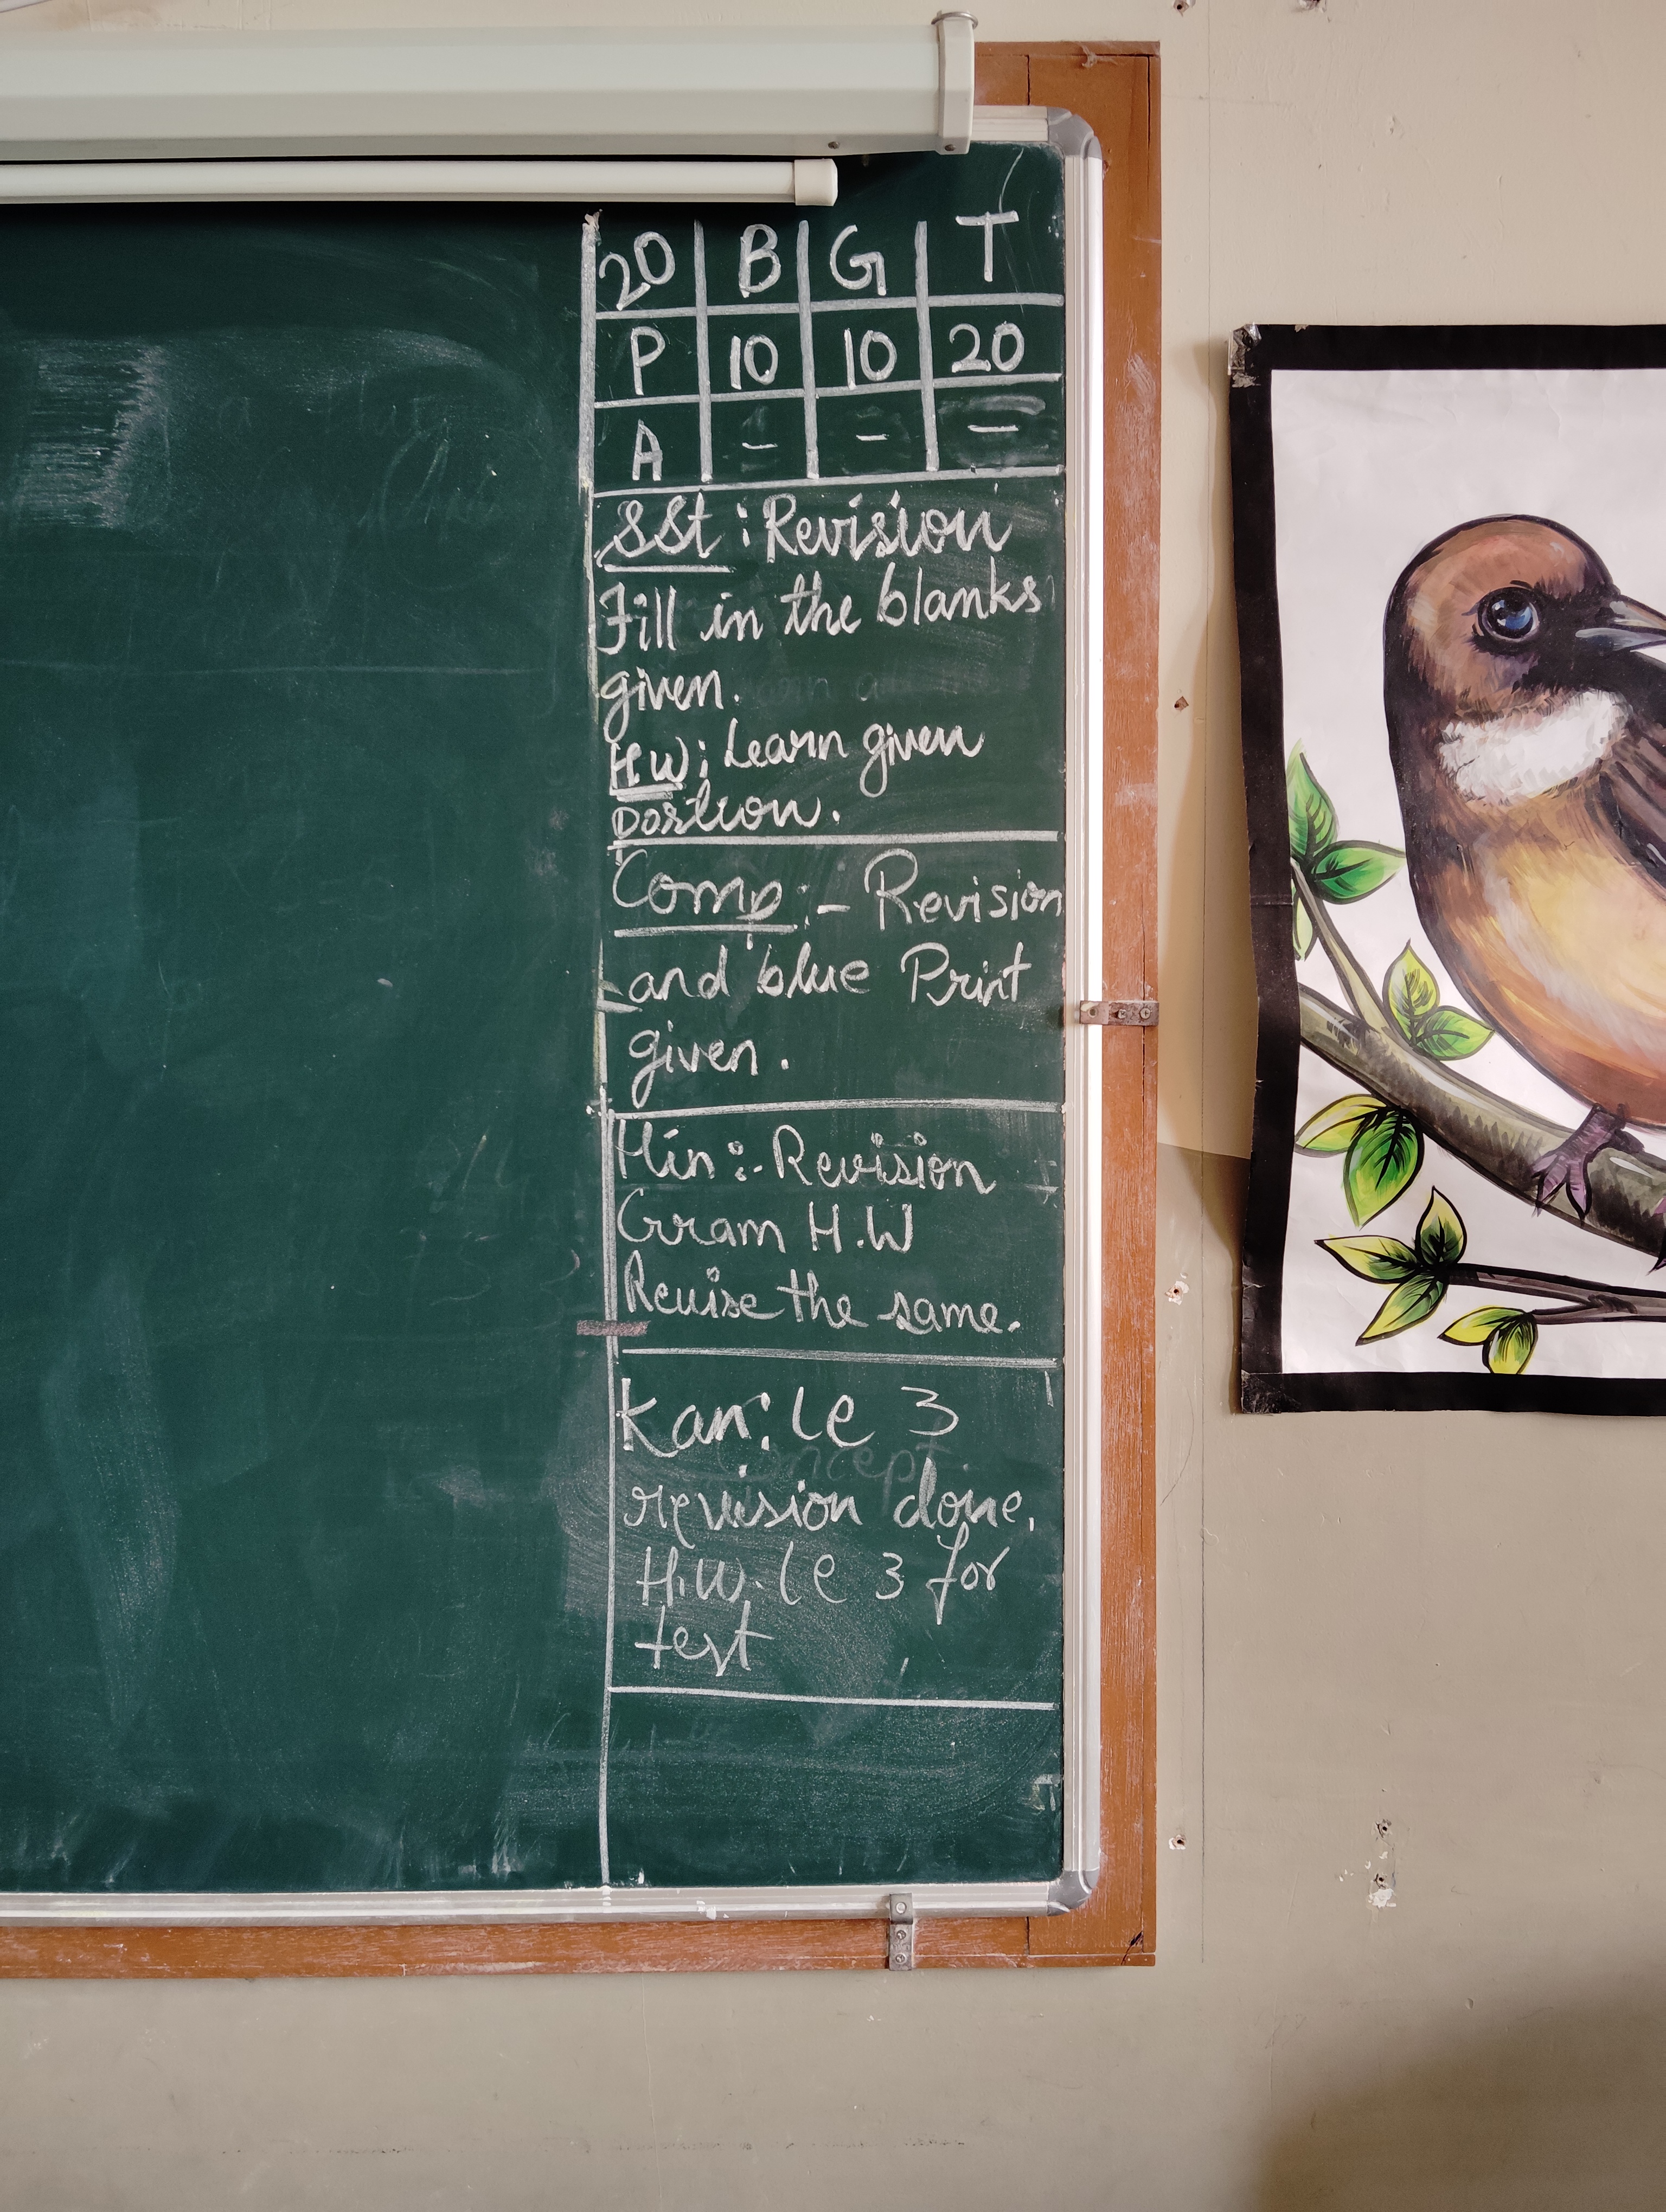 20 B G T
P 10 10 20
A - - -
SSt : Revision
Fill in the blanks
given.
HW: Learn given
portion.
Comp :- Revision
and blue Print
given.
Hin :- Revision
Gram H.W
Revise the same.
Kan: le 3
revision done.
H.W. le 3 for
test